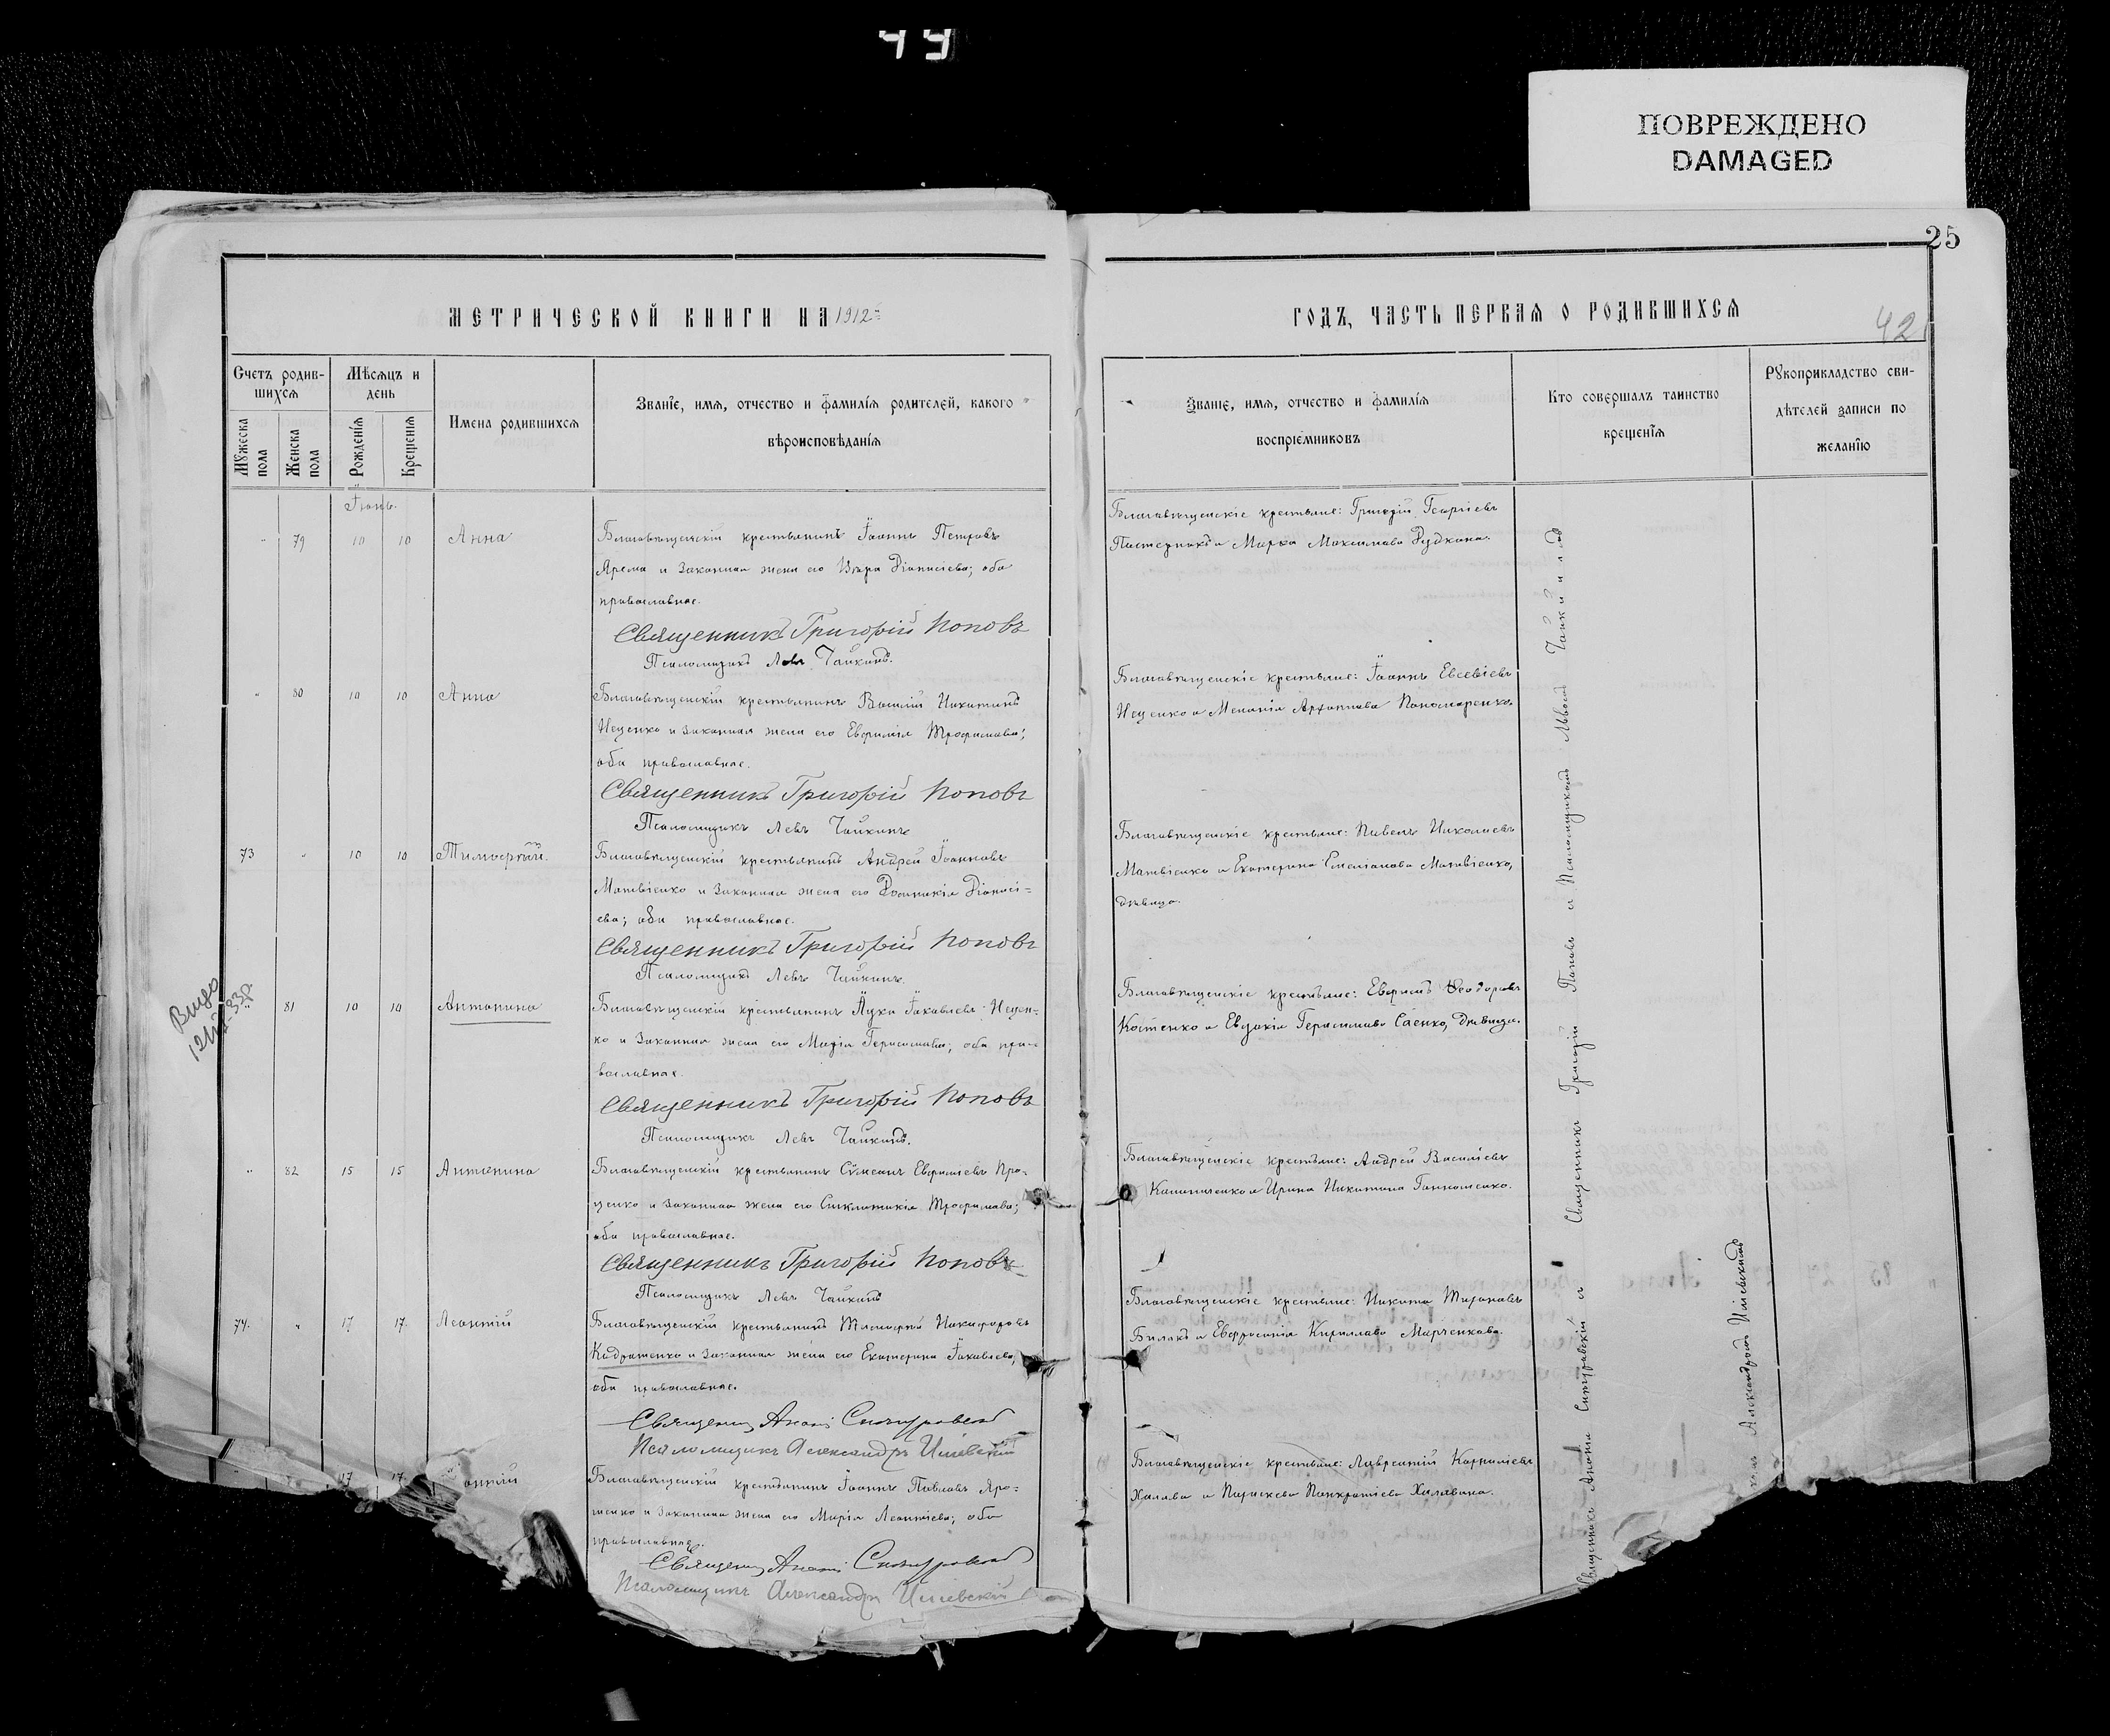 49
ПОВРЕЖДЕНО
DAMAGED
25
МЕТРИЧЕСКОЙ КНИГИ НА 1912
ГОДЪ, ЧАСТЬ ПЕРВАЯ О РОДИВШИХСЯ
42
Счетъ родив-
шихся
Мужеска пола
Женска пола
Мѣсяцъ и
день
Рожденія
Крещенія
Имена родившихся
Званіе, имя, отчество и фамилія родителей, какого
вѣроисповѣданія
Званіе, имя, отчество и фамилія
воспріемниковъ
Кто совершалъ таинство
крещенія
Рукоприкладство сви-
дѣтелей записи по
желанію
Іюнь.
" 79 10 10 Анна Благовѣщенскій крестьянинъ Іоаннъ Петровъ
Ярема и законная жена его Вѣра Діонисіева; оба
православные.
Священникъ Григорій Поповъ
Псаломщикъ Левъ Чайкинъ.
Благовѣщенскіе крестьяне: Григорій Георгіевъ
Пастернакъ и Марѳа Максимова Рудкина.
" 80 10 10 Анна Благовѣщенскій крестьянинъ Василій Никитинъ
Неценко и законная жена его Евфимія Трофимова;
оба православные.
Священникъ Григорій Поповъ
Псаломщикъ Левъ Чайкинъ
Благовѣщенскіе крестьяне: Іоаннъ Евсевіевъ
Неценко и Меланія Пономаренко.
73 " 10 10 Тимофей. Благовѣщенскій крестьянинъ Андрей Іоанновъ
Матвіенко и законная жена его Домникія Діонисі-
ева; оба православные.
Священникъ Григорій Поповъ
Псаломщикъ Левъ Чайкинъ.
Благовѣщенскіе крестьяне: Павелъ Николаевъ
Матвіенко и Екатерина Емеліанова Матвіенко,
дѣвица.
" 81 10 10 Антонина Благовѣщенскій крестьянинъ Лука Іаковлевъ Нецен-
ко и законная жена его Марія Герасимова; оба пра-
вославные.
Священникъ Григорій Поповъ
Псаломщикъ Левъ Чайкинъ.
Благовѣщенскіе крестьяне: Евфимъ Ѳеодоровъ
Костенко и Евдокія Герасимова Саенко, дѣвица.
" 82 15 15 Антонина Благовѣщенскій крестьянинъ Сѵмеонъ Евфиміевъ Про-
ценко и законная жена его Синклитикія Трофимова;
оба православные.
Священникъ Григорій Поповъ
Псаломщикъ Левъ Чайкинъ
Благовѣщенскіе крестьяне: Андрей Василіевъ
Калиниченко и Ирина Никитина
74. " 17 17. Леонтій Благовѣщенскій крестьянинъ Тимофей Никифоровъ
Кодратенко и законная жена его Екатерина Іаковлева,
оба православные.
Священникъ
Псаломщикъ Александръ
Благовѣщенскіе крестьяне: Никита
Билакъ и Евфросинія Кириллова Марченкова.
17 17. онтій Благовѣщенскій крестьянинъ Іоаннъ Павловъ Яро-
шенко и законная жена его Марія Леонтіева; оба
православные.
Священникъ
Псаломщикъ Александръ
Благовѣщенскіе крестьяне: Лаврентій Корниліевъ
Халява и Параскева Панкратіева Халявина.
Священникъ Григорій Поповъ и Псаломщикъ Чайкинъ
Священникъ